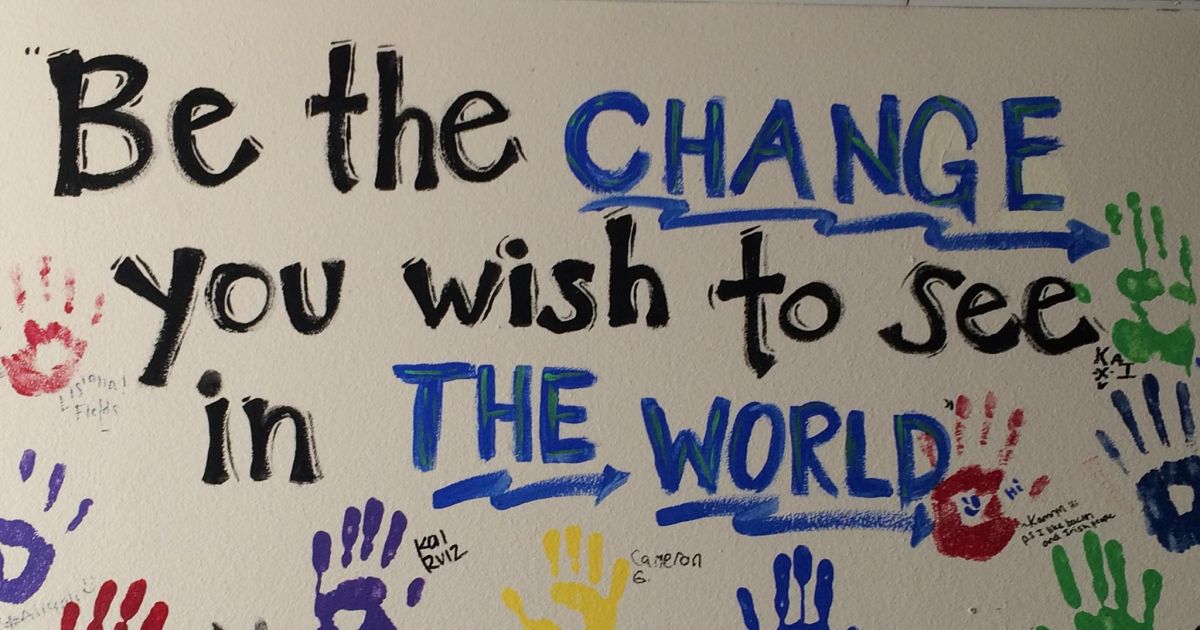 "Be the CHANGE
you wish to see
in THE WORLD"
Fields
Kai
Ruiz
Cameron
G.
Hi
~Kamryn Hi
P.S I like bacon
and Irish people